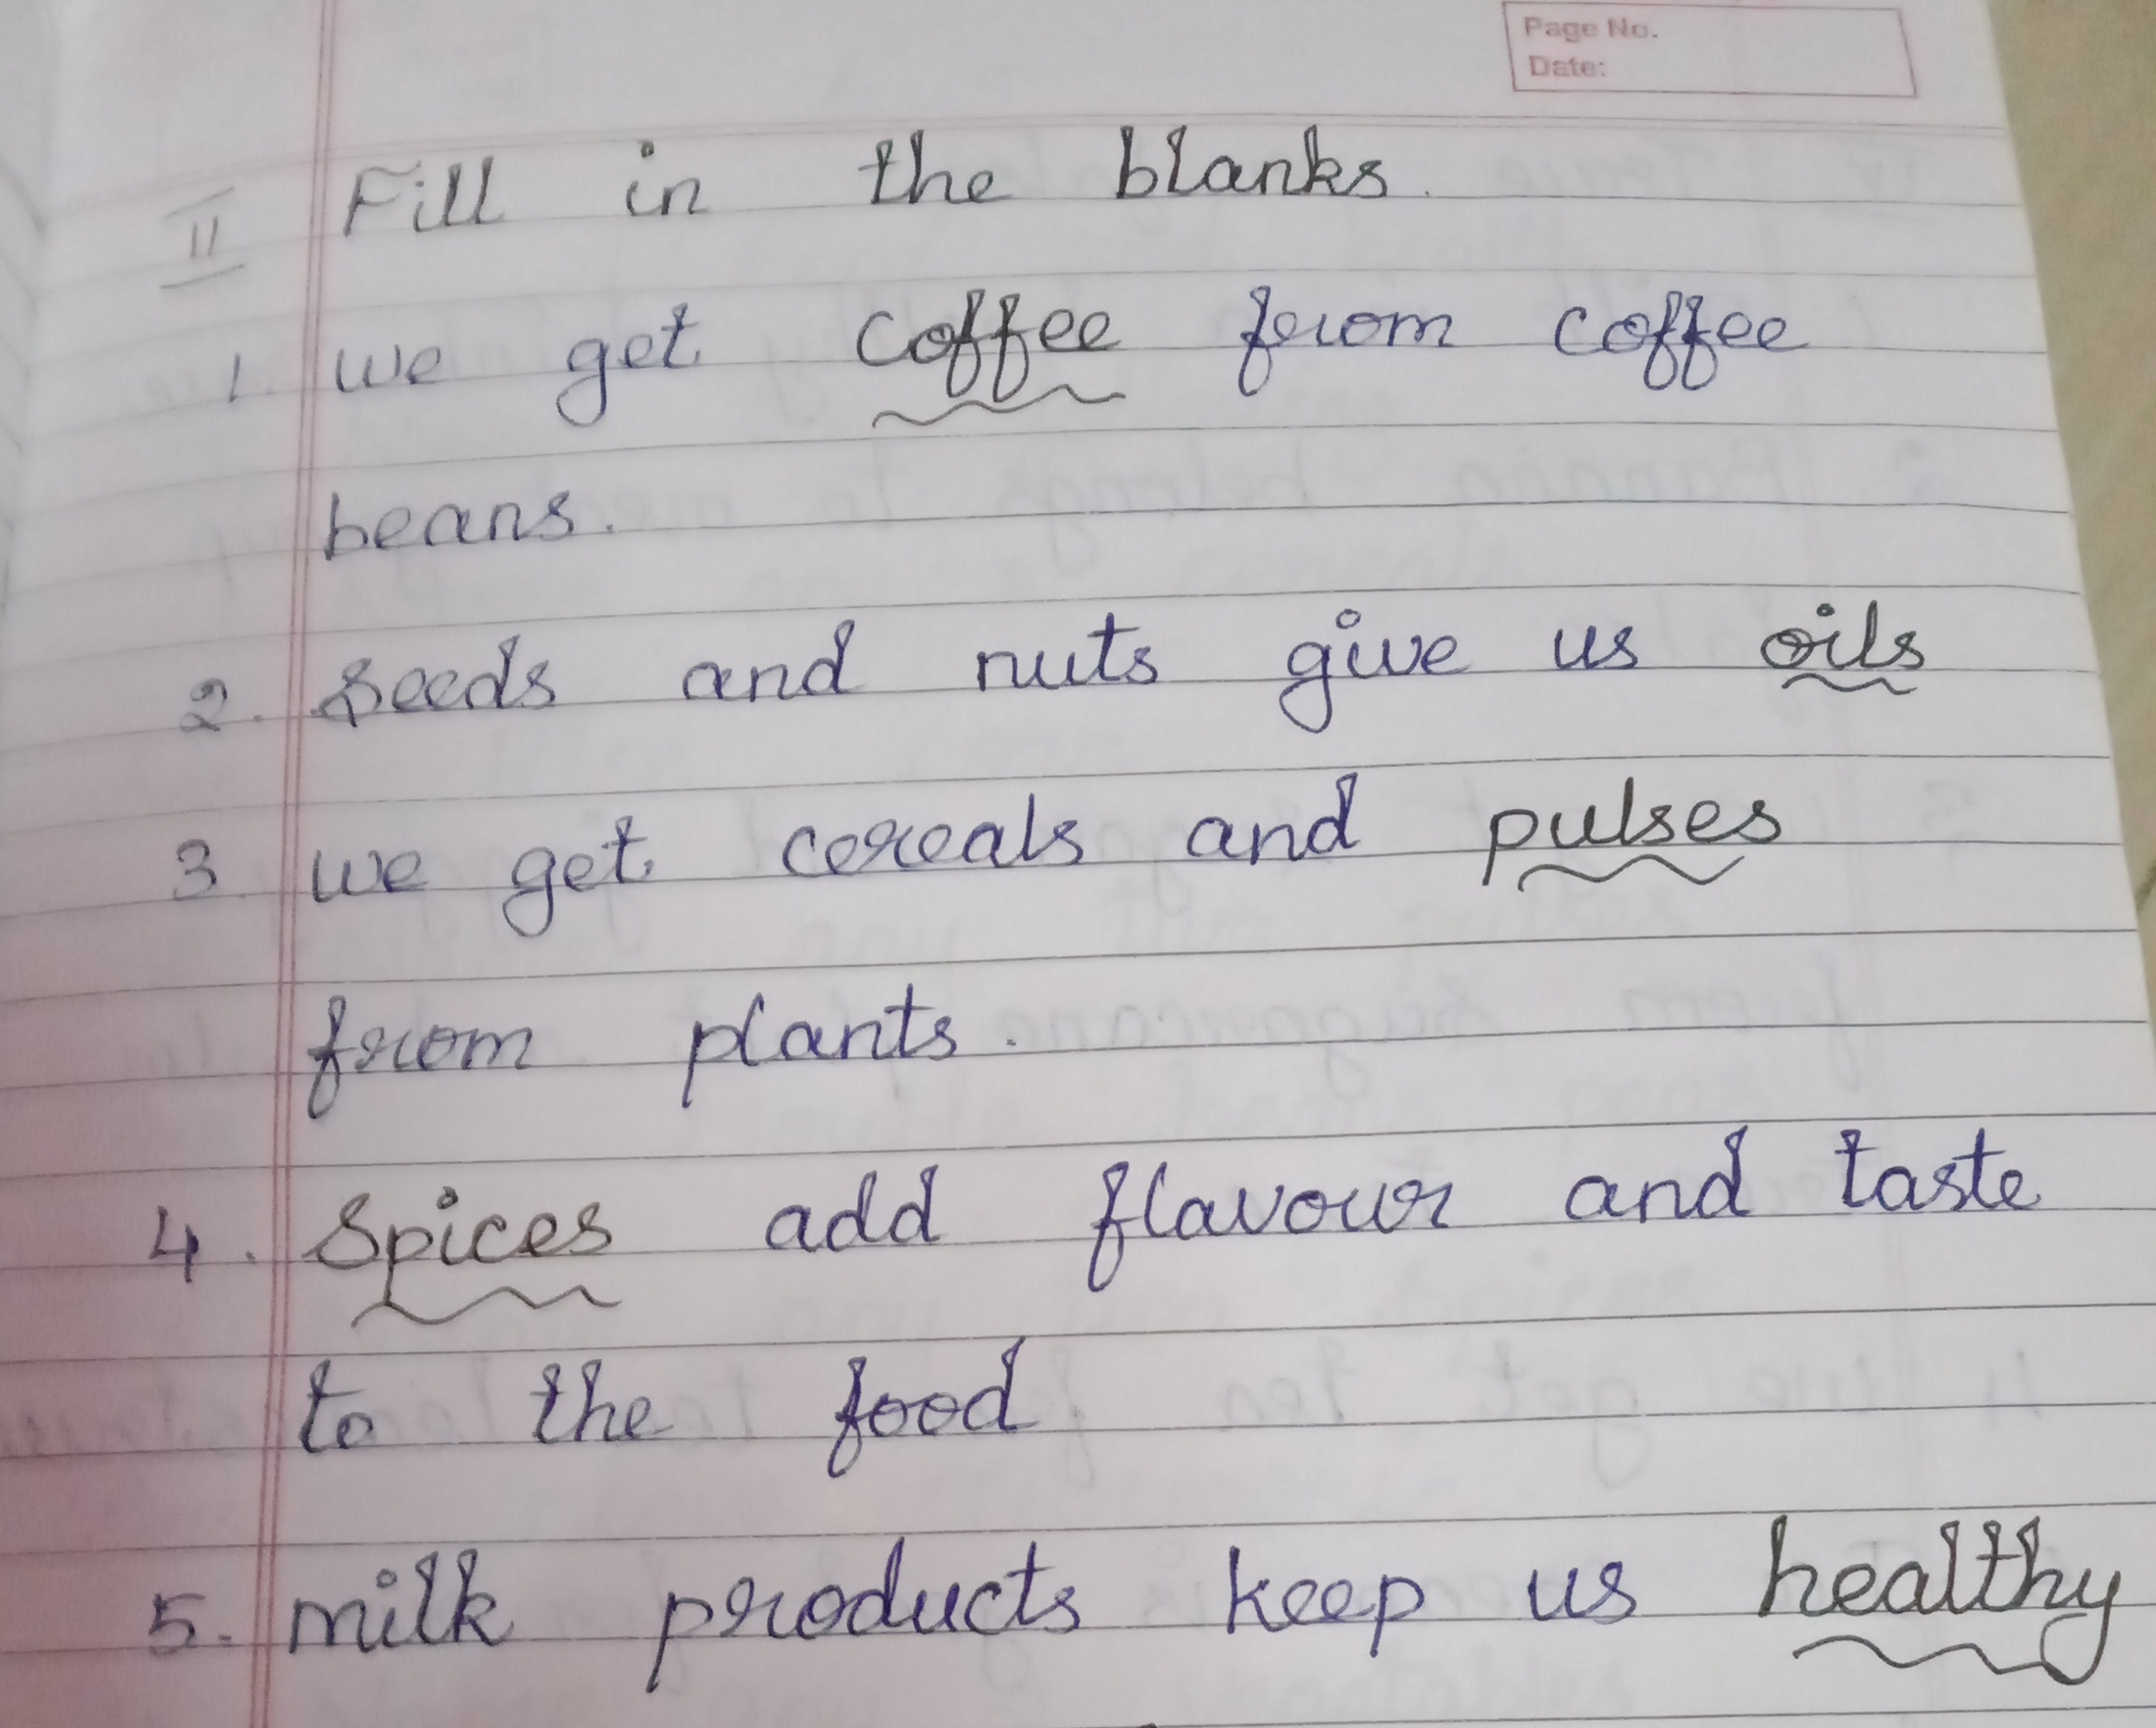 Page No.
Date:
II Fill in the blanks.
1. we get coffee from coffee
beans.
2. Seeds and nuts give us oils
3 we get cereals and pulses
from plants.
4. Spices add flavour and taste
to the food
5. milk products keep us healthy